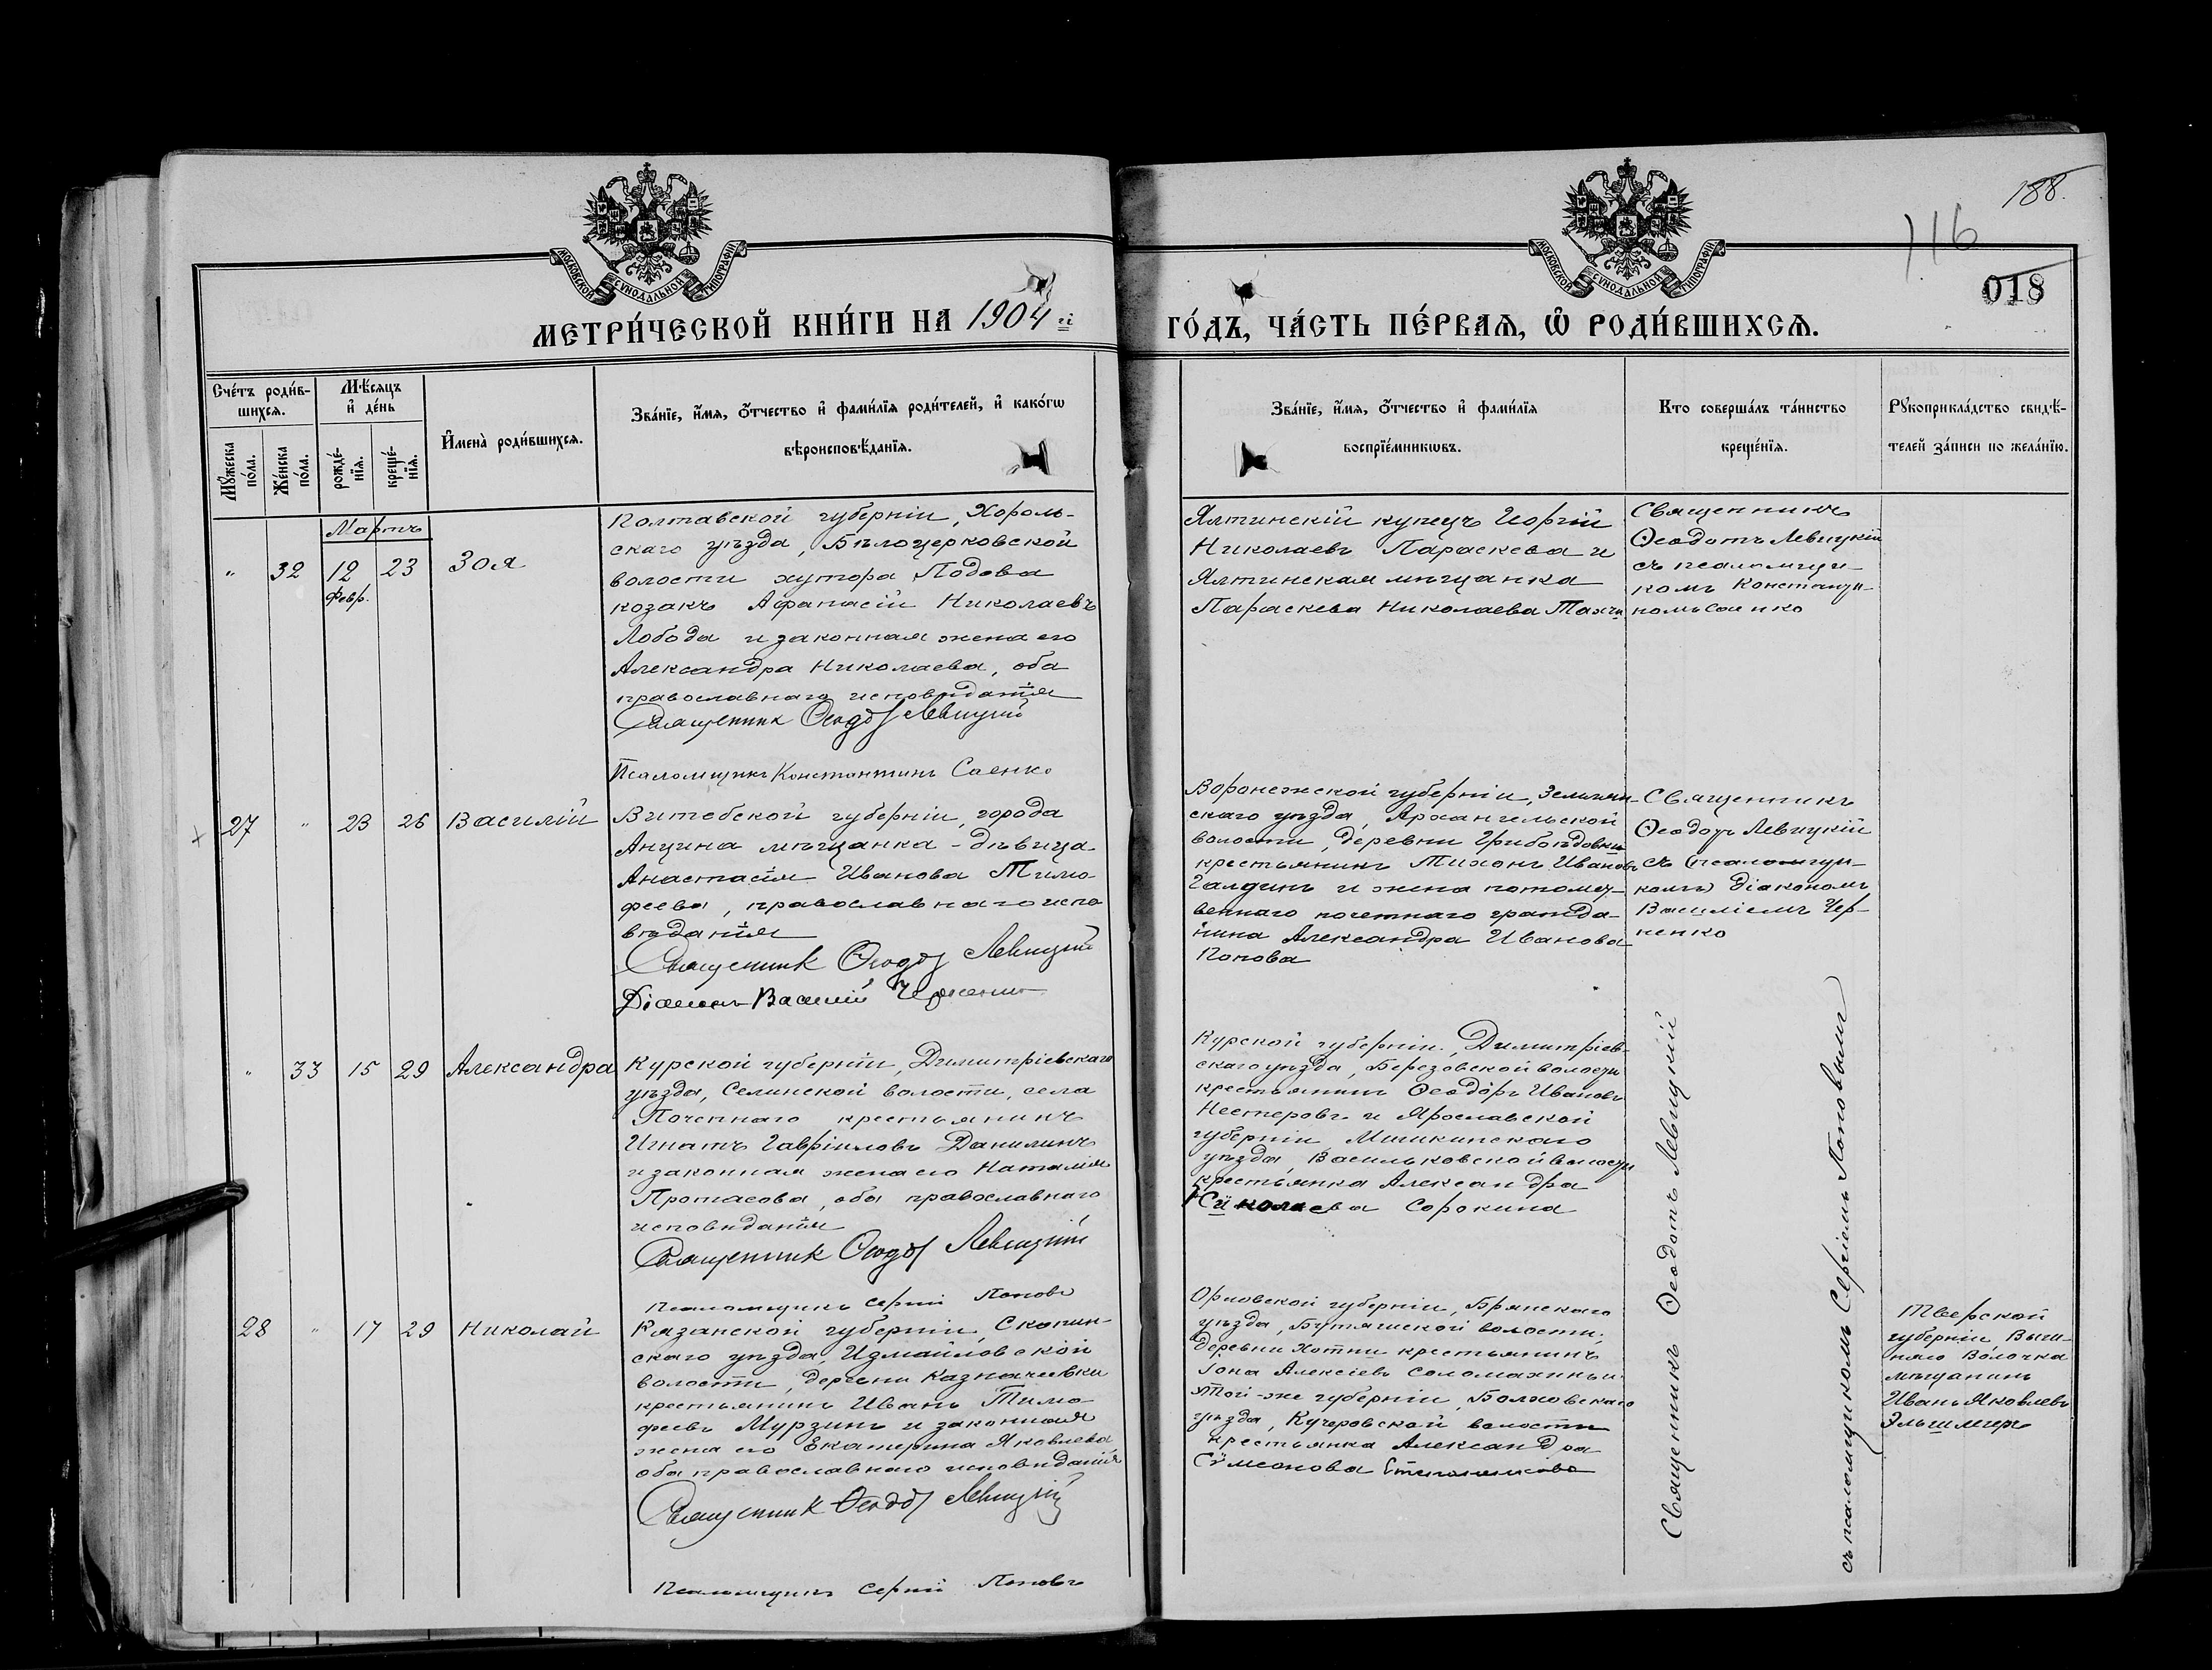 188.
116
018
МОСКОВСКОЙ СѴНОДАЛЬНОЙ ТИПОГРАФІИ
МОСКОВСКОЙ СѴНОДАЛЬНОЙ ТИПОГРАФІИ
МЕТРИ́ЧЕСКОЙ КНИ́ГИ НА 1904 й
ГО́ДЪ, ЧА́СТЬ ПЕ́РВАѦ, Ѽ РОДИ́ВШИХСѦ.
Сче́тъ роди́в-
шихсѧ.
Мѣ́сѧцъ
и҆ де́нь
Мꙋ́жеска
по́ла.
Же́нска
по́ла.
рожде́-
нїѧ.
креще́-
нїѧ.
И҆мена̀ роди́вшихсѧ.
Зва́нїе, и҆́мѧ, ѻ҆́тчество и҆ фами́лїѧ роди́телей, и҆ како́гѡ
вѣроисповѣ́данїѧ.
Зва́нїе, и҆́мѧ, ѻ҆́тчество и҆ фами́лїѧ
воспрїе́мникѡвъ.
Кто соверша́лъ та́инство
креще́нїѧ.
Рꙋкоприкла́дство свидѣ́-
телей за́писи по жела́нїю.
Мартъ
" 32 12 23 Зоя
Февр.
Полтавской губерніи, Хороль-
скаго уѣзда, Бѣлоцерковской
волости хутора Подова
козакъ Афанасій Николаевъ
Лобода и законная жена его
Александра Николаева, оба
православнаго исповѣданія
Священник Ѳеодот Левицкій
Псаломщикъ Константинъ Саенко
Ялтинскій купецъ Георгій
Николаевъ Параскева и
Ялтинская мѣщанка
Параскева Николаева
Священникъ
Ѳеодотъ Левицкій
съ псаломщи-
комъ Константи-
номъ Саенко
27 " 23 26 Василій
Витебской губерніи, города
мѣщанка - дѣвица
Анастасія Иванова Тимо-
феева, православнаго испо
вѣданія
Священник Ѳеодот Левицкій
Діаконъ Василій Черненко
Воронежской губерніи, Землян-
скаго уѣзда, Архангельской
волости, деревни
крестьянинъ Тихонъ Ивановъ
Галдинъ и жена потомст-
веннаго почетнаго гражда-
нина Александра Иванова
Попова
Священникъ
Ѳеодотъ Левицкій
съ (псаломщи-
комъ) діакономъ
Василіемъ Чер-
ненко
" 33 15 29 Александра
Курской губерніи, Димитріевскаго
уѣзда, Селинской волости, села
Почепнаго крестьянинъ
Игнатъ Гавріиловъ Данилинъ
и законная жена его Наталія
Протасова, оба православнаго
исповѣданія
Священник Ѳеодот Левицкій
Псаломщикъ Сергій Поповъ
Курской губерніи, Димитріев-
скаго уѣзда, Березовской волости
крестьянинъ Ѳеодоръ Ивановъ
Нестеровъ и Ярославской
губерніи Мышкинскаго
уѣзда, Васильковской волости
крестьянка Александра
Николаева Сорокина
Священникъ Ѳеодотъ Левицкій
съ псаломщикомъ Сергіемъ Поповымъ
28 " 17 29 Николай
Рязанской губерніи, Скопин-
скаго уѣзда, Измайловской
волости, деревни Казначеевки
крестьянинъ Иванъ Тимо-
феевъ Мурзинъ и законная
жена его Екатерина Яковлева
оба православнаго исповѣданія
Священник Ѳеодот Левицкій
Псаломщикъ Сергій Поповъ
Орловской губерніи, Брянскаго
уѣзда, волости,
деревни Хотни крестьянинъ
Іона Алексіевъ Соломахинъ и
той-же губерніи, Болховскаго
уѣзда, Кучеровской волости
крестьянка Александра
Симеонова
Тверской
губерніи Выш-
няго Волочка
мѣщанинъ
Иванъ Яковлевъ